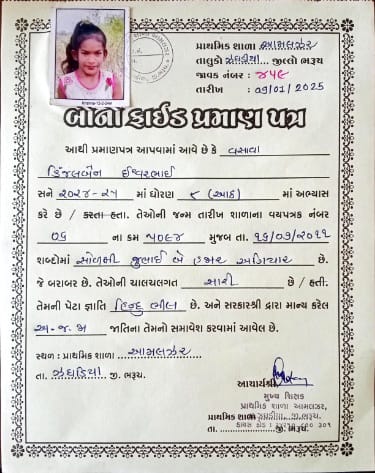 પ્રાથમિક શાળા આમલઝર
તાલુકો ઝઘડીયા જીલ્લો ભરૂચ
જાવક નંબર : ૪૫૬
તારીખ : 09/01/2025
બોનાફાઈડ પ્રમાણ પત્ર
આથી પ્રમાણપત્ર આપવામાં આવે છે કે વસાવા
ડિંજલબેન ઈશ્વરભાઈ
સને ૨૦૨૪-૨૫ માં ધોરણ ૮ (આઠ) માં અભ્યાસ
કરે છે / કરતા હતા. તેઓની જન્મ તારીખ શાળાના વયપત્રક નંબર
૦૬ ના ક્રમ ૧૦૯૪ મુજબ તા. ૧૬/૦૭/૨૦૧૧
શબ્દોમાં સોળમી જુલાઈ બે હજાર અગિયાર છે.
જે બરાબર છે. તેઓની ચાલચલગત સારી છે / હતી.
તેમની પેટા જ્ઞાતિ હિન્દુ ભીલ છે. અને સરકારશ્રી દ્વારા માન્ય કરેલ
અ.જ.જા જાતિના તેમનો સમાવેશ કરવામાં આવેલ છે.
સ્થળ : પ્રાથમિક શાળા આમલઝર
તા. ઝઘડિયા જી. ભરૂચ.
આચાર્યશ્રી
મુખ્ય શિક્ષક
પ્રાથમિક શાળા આમલઝર,
પ્રાથમિક શાળા
તા. જી. ભરૂચ.